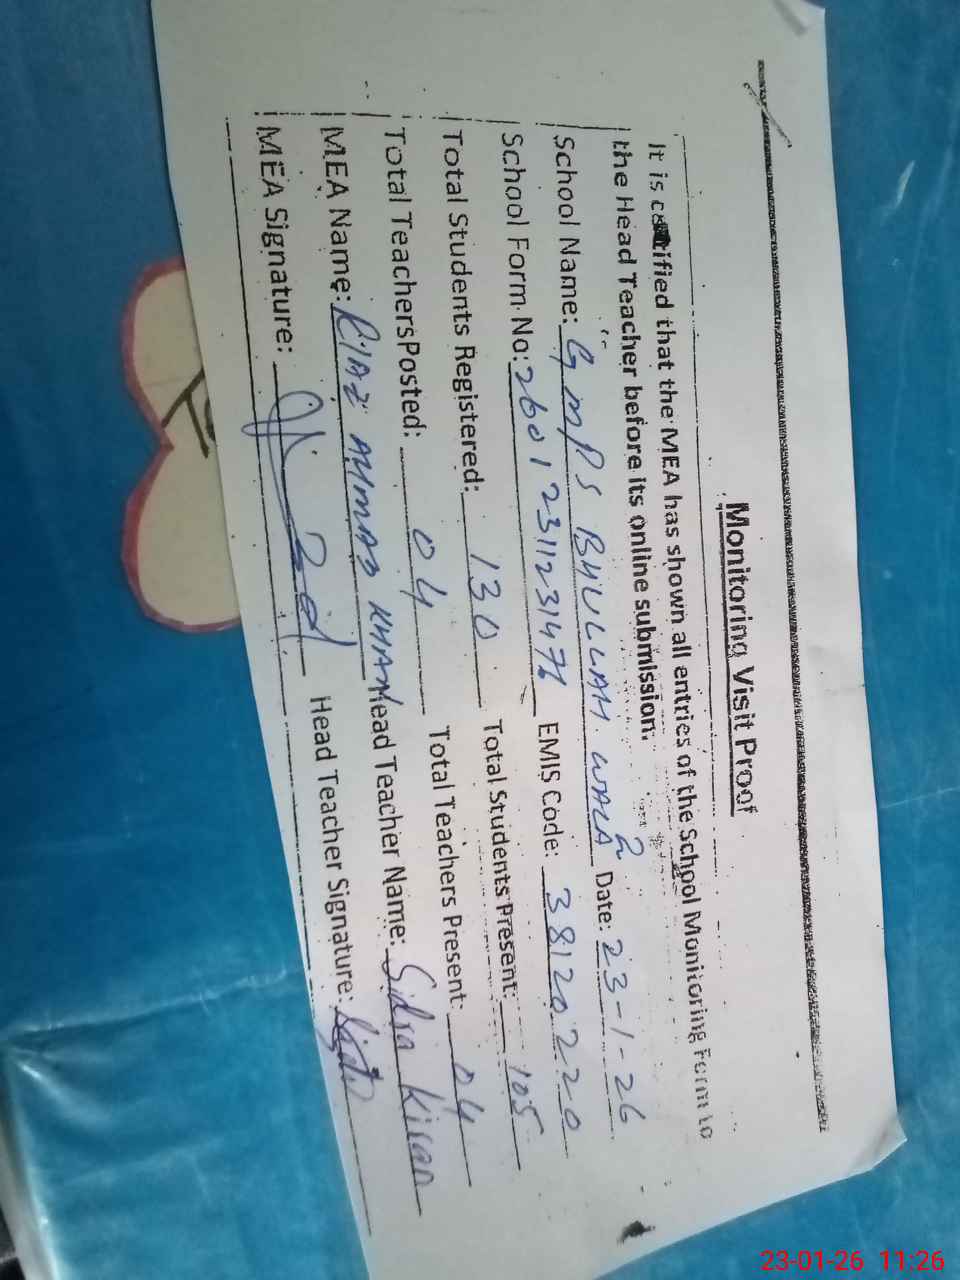 Monitoring Visit Proof
It is certified that the MEA has shown all entries of the School Monitoring Form to
the Head Teacher before its online submission.
School Name: GMPS BHULLAH WALA Date: 23-1-26
School Form No: EMIS Code: 38120220
Total Students Registered: 130 Total Students Present: 105
Total Teachers Posted: 04 Total Teachers Present: 04
MEA Name: RIAZ AHMAD KHAN Head Teacher Name: Sidra Kiran
MEA Signature: Head Teacher Signature:
23-01-26 11:26